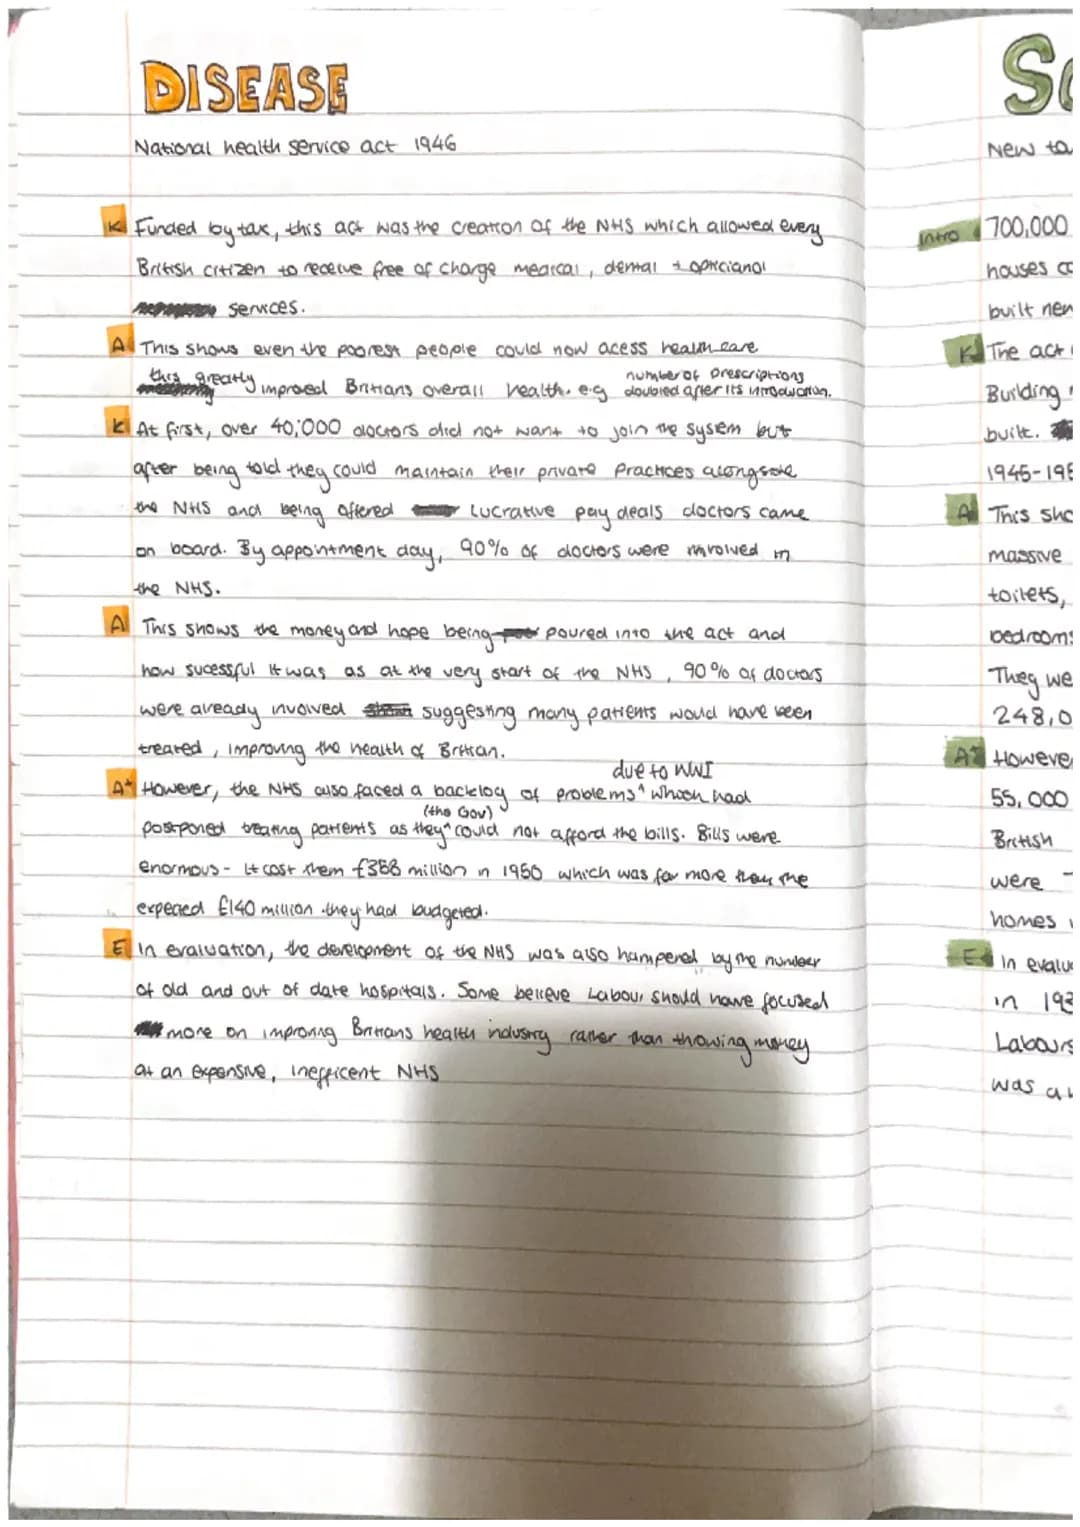 DISEASE
National health service act 1946
K Funded by tax, this act was the creation of the NHS which allowed every
British citizen to receive free of charge medical, dental + opticianal
services.
A This shows even the poorest people could now acess health care
this greatly improved Britians overall health. e.g number of prescriptions doubled after its introduction.
K At first, over 40,000 doctors did not want to join the system but
after being told they could maintain their private practices alongside
the NHS and being offered lucrative pay deals doctors came
on board. By appointment day, 90% of doctors were involved in
the NHS.
A This shows the money and hope being poured into the act and
how sucessful it was as at the very start of the NHS, 90% of doctors
were already involved suggesting many patients would have been
treated, improving the health of Britian.
A+ However, the NHS also faced a backlog of problems ^ due to WWI which had
postponed treating patients as they ^ (the Gov) could not afford the bills. Bills were
enormous - It cost them £358 million in 1950 which was far more than the
expected £140 million they had budgeted.
E In evaluation, the development of the NHS was also hampered by the number
of old and out of date hospitals. Some believe Labour should have focused
more on improving Britians health industry rather than throwing money
at an expensive, inefficent NHS
New
Intro 700,000
houses
built
K The act
Building
built.
1945-195
A This
massive
toilets,
bedrooms
They we
248,0
A+ However
55,000
British
were
homes
E In evalua
in 193
Labours
was